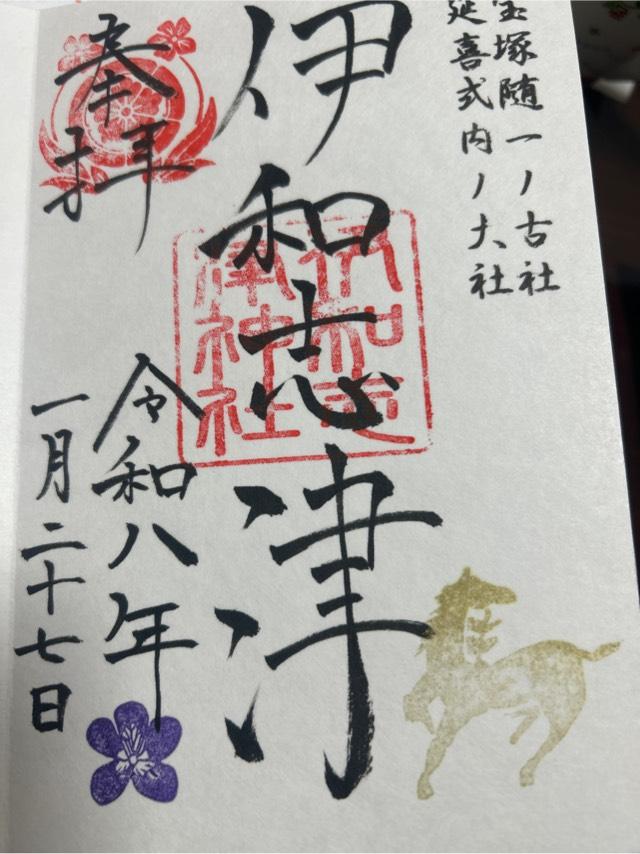 宝塚随一ノ古社
延喜式内ノ大社
伊和志津
伊和志
津神社
奉拝
令和八年
一月二十七日